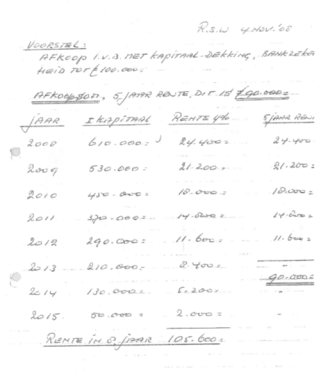 R.S.W 4 NOV.'08
VOORSTEL:
AFKOOP I.V.B. MET KAPITAAL-DEKKING, BANKZEKER
HEID TOT € 100.000=
AFKOOPSOM, 5 JAAR RENTE, DIT IS € 90.000=
JAAR KAPITAAL RENTE 4% 5 JAAR REN
2008 610.000= 24.400= 24.400
2009 530.000= 21.200= 21.200=
2010 450.000= 18.000= 18.000=
2011 370.000= 14.800= 14.800=
2012 290.000= 11.600= 11.600=
2013 210.000= 8.400= -
90.000=
2014 130.000= 5.200= -
2015 50.000= 2.000= -
RENTE IN 8 JAAR 105.600=